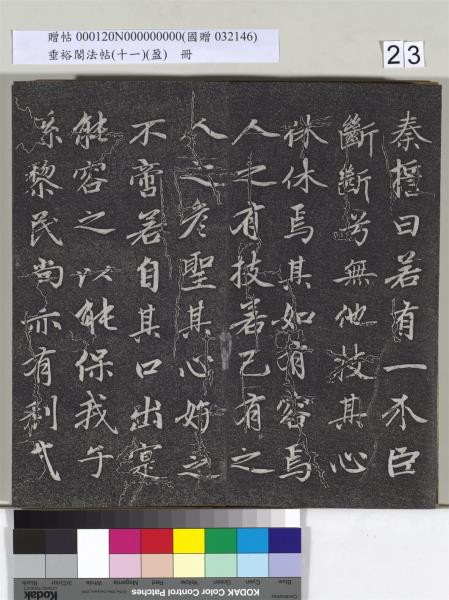 贈帖 000120N000000000(國贈 032146)
垂裕閣法帖(十一)(盈) 冊
23
秦誓曰若有一个臣
斷斷兮無他技其心
休休焉其如有容焉
人之有技若己有之
人之彥聖其心好之
不啻若自其口出寔
能容之以能保我子
孫黎民尚亦有利哉
Blue Cyan Green Yellow Red Magenta White 3/Color Black
Kodak Color Control Patches
Kodak